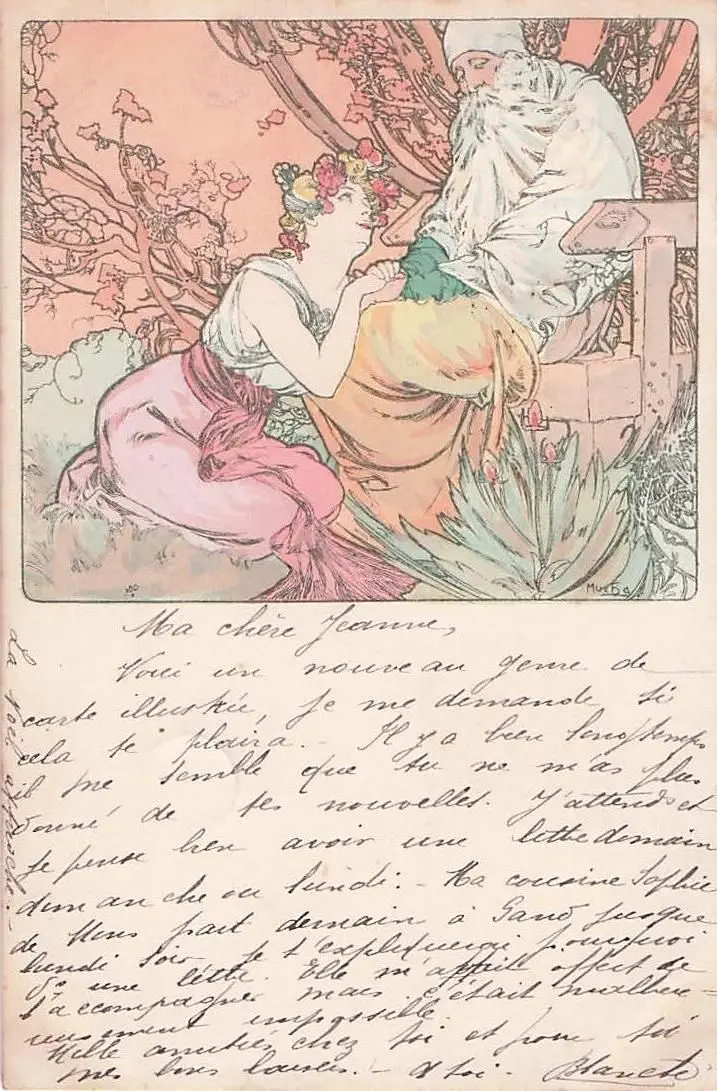 Mucha
Ma chère Jeanne,
Voici un nouveau genre de
carte illustrée, je me demande si
cela te plaira. - Il y a bien longtemps
il me semble que tu ne m'as plus
donné de tes nouvelles. J'attends et
je pense bien avoir une lettre demain
dimanche ou lundi. - Ma cousine Sophie
de part demain à Gand jusque
lundi soir je t'expliquerai pourquoi
ds une lettre. Elle m'avait offert de
l'accompagner mais c'était malheu=
reusement impossible.
Mille amitiés chez toi et pour toi
mes bons baisers. - A toi. - Blanche
La Noël approche. -